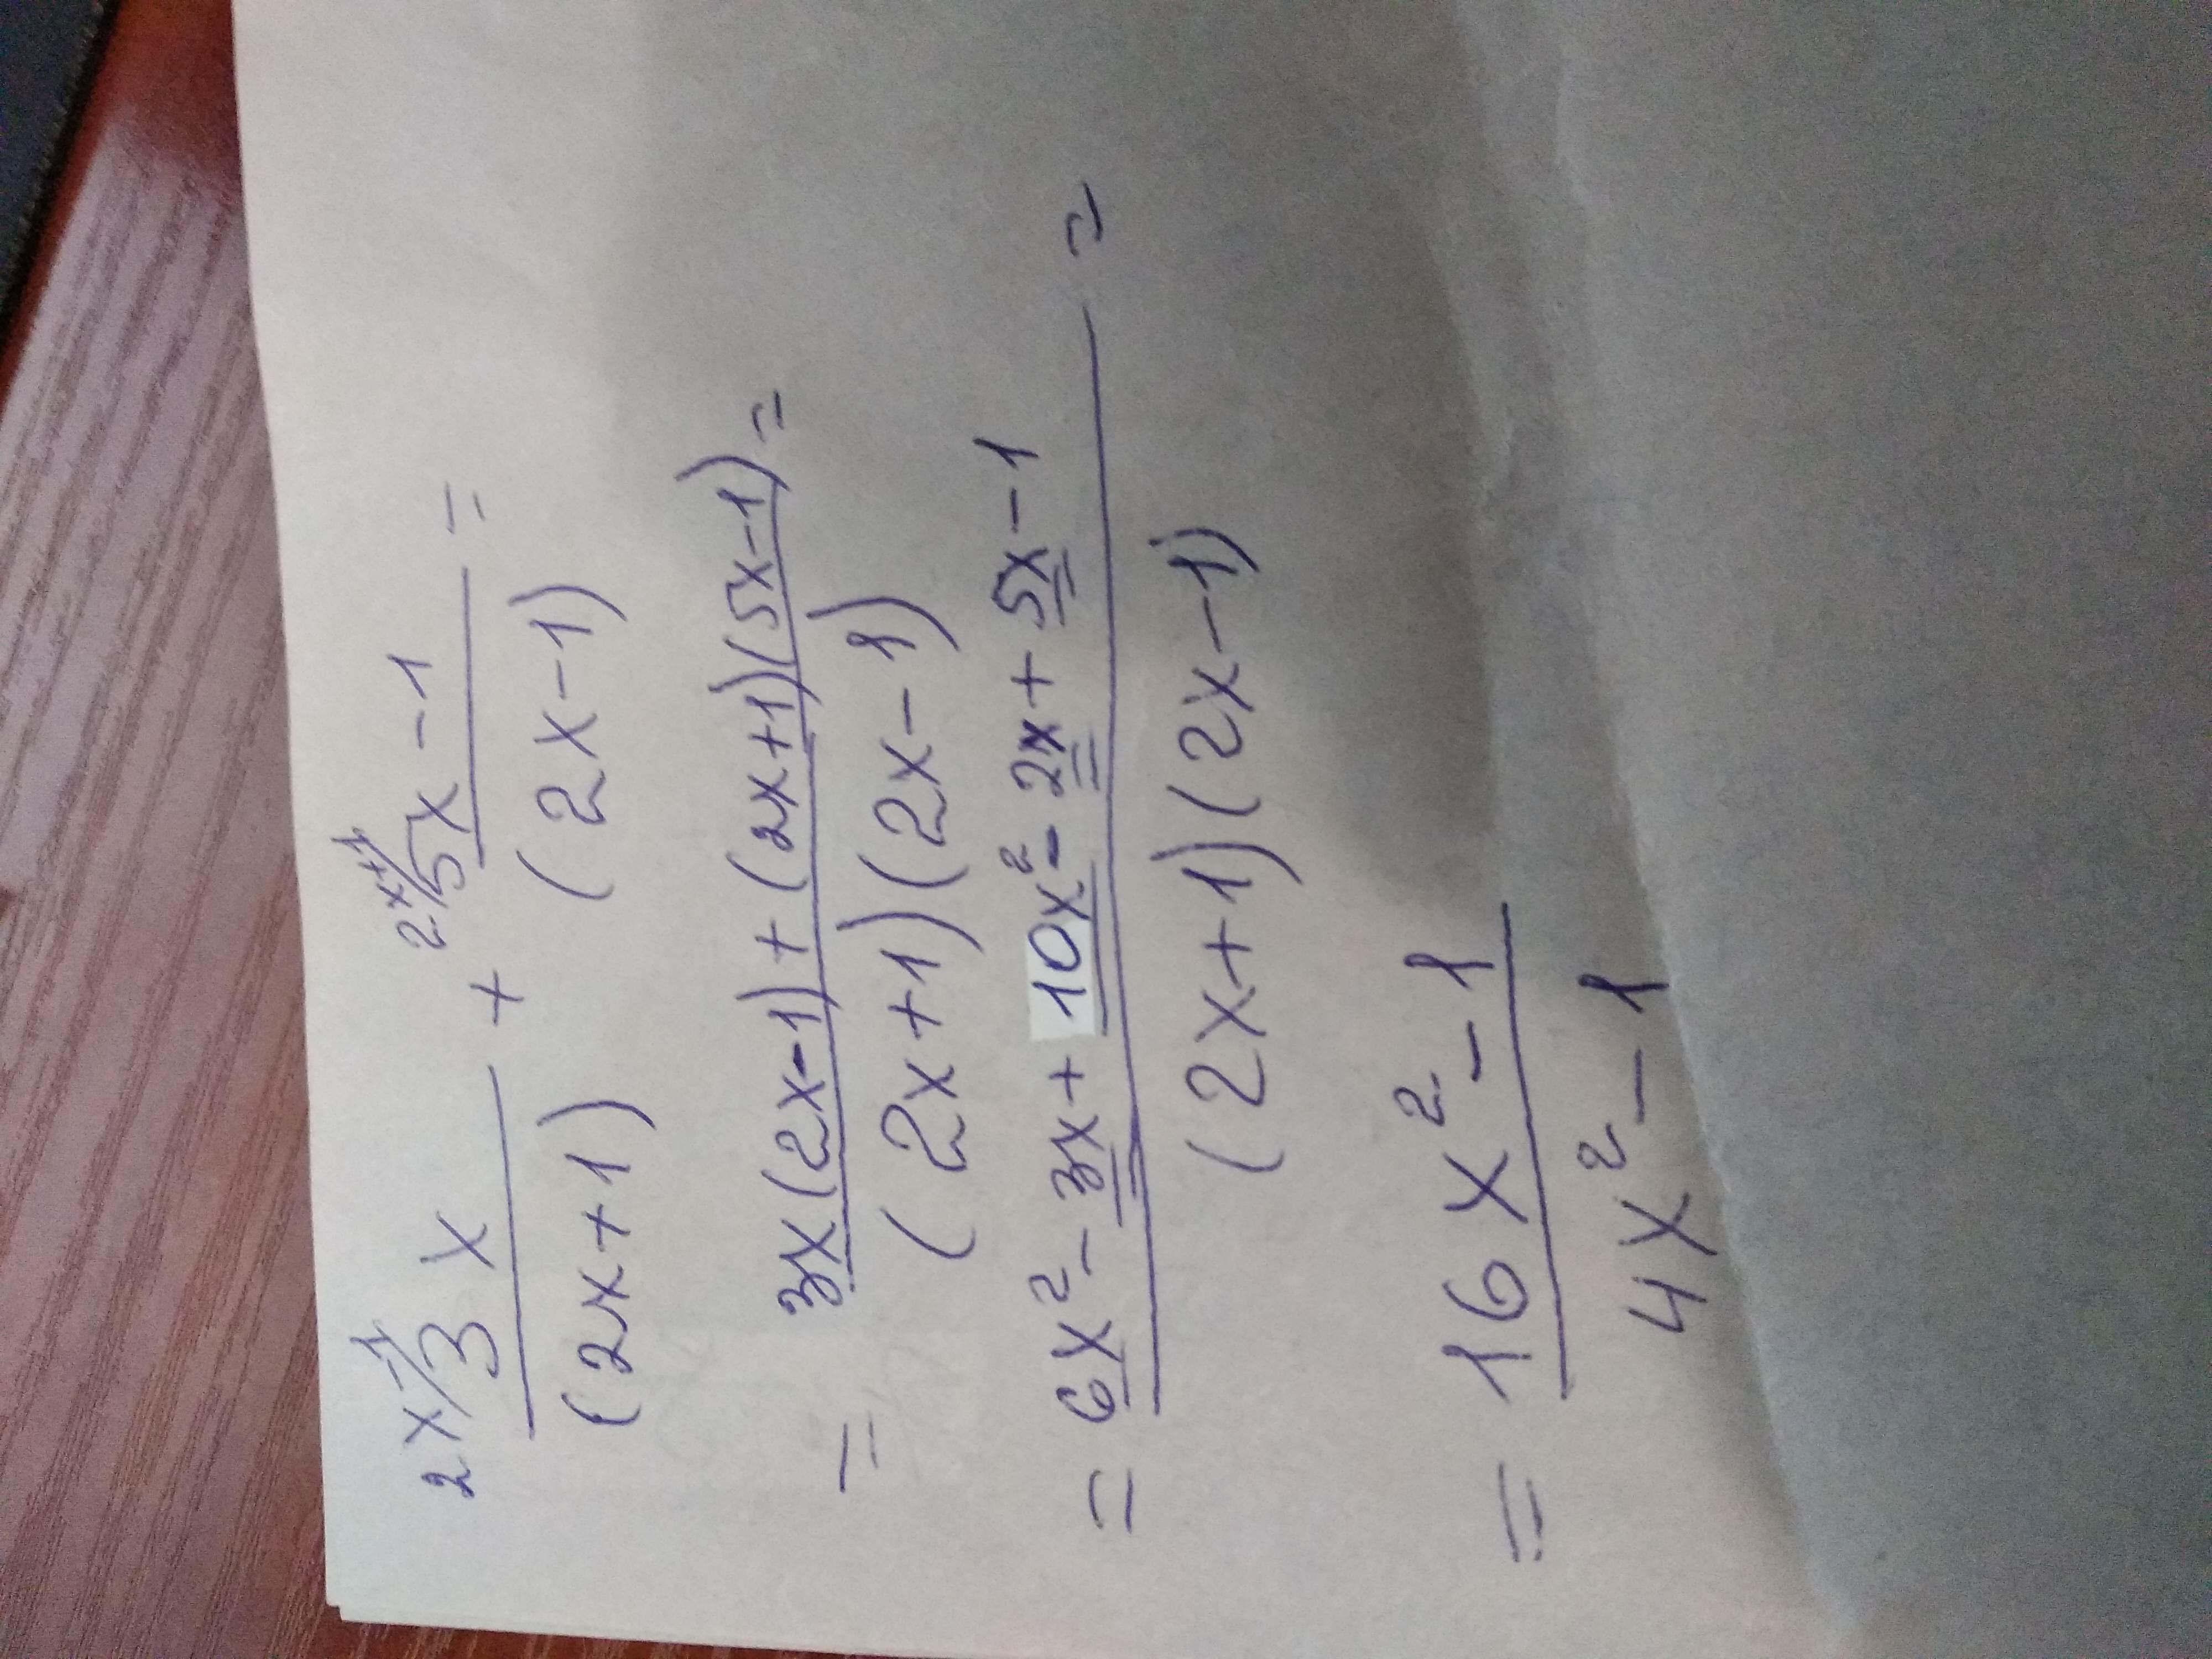 2x-1/ 3x 2x+1/ 5x-1
――― + ――― =
(2x+1) (2x-1)
= 3x(2x-1)+(2x+1)(5x-1) =
(2x+1)(2x-1)
= 6x²-3x+10x²-2x+5x-1 =
(2x+1)(2x-1)
= 16x²-1
4x²-1